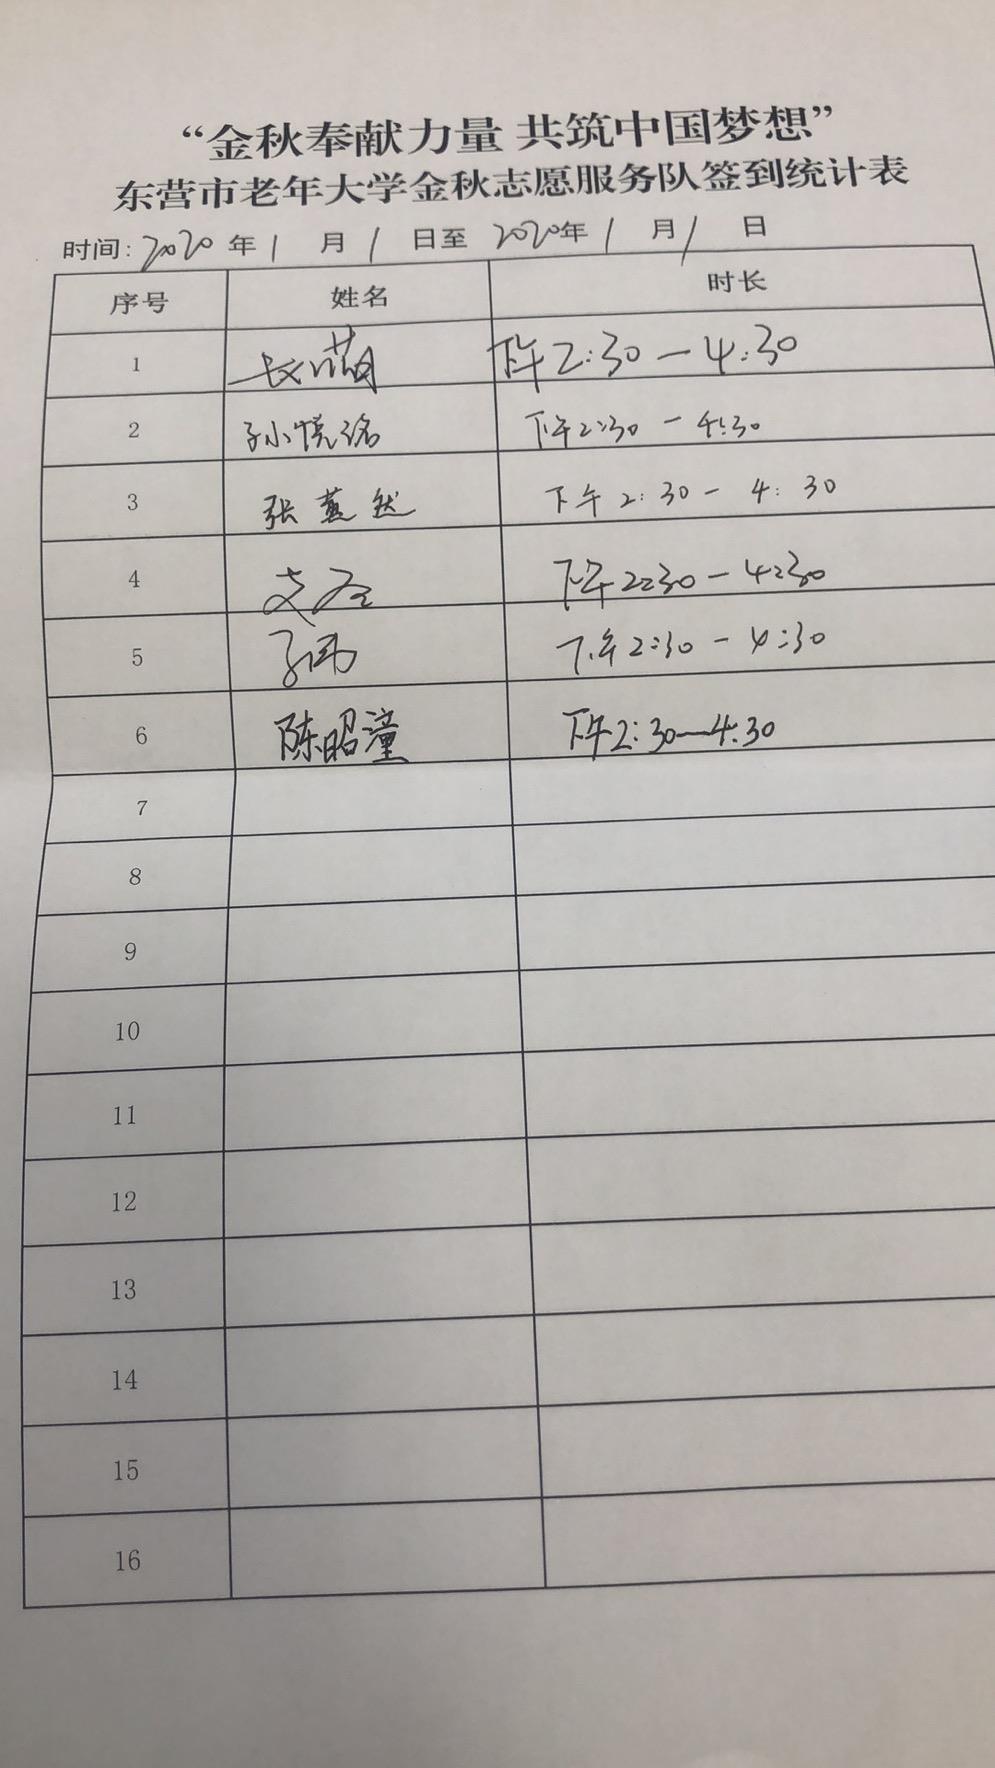 “金秋奉献力量 共筑中国梦想”
东营市老年大学金秋志愿服务队签到统计表
时间: 2020 年 1 月 1 日至 2020年 1 月 1 日
序号 姓名 时长
1 下午 2:30 — 4:30
2 孙小悦 下午2:30 — 4:30
3 张 然 下午 2:30 — 4:30
4 下午2:30 — 4:30
5 下午2:30 — 4:30
6 陈昭潼 下午2:30—4:30
7
8
9
10
11
12
13
14
15
16